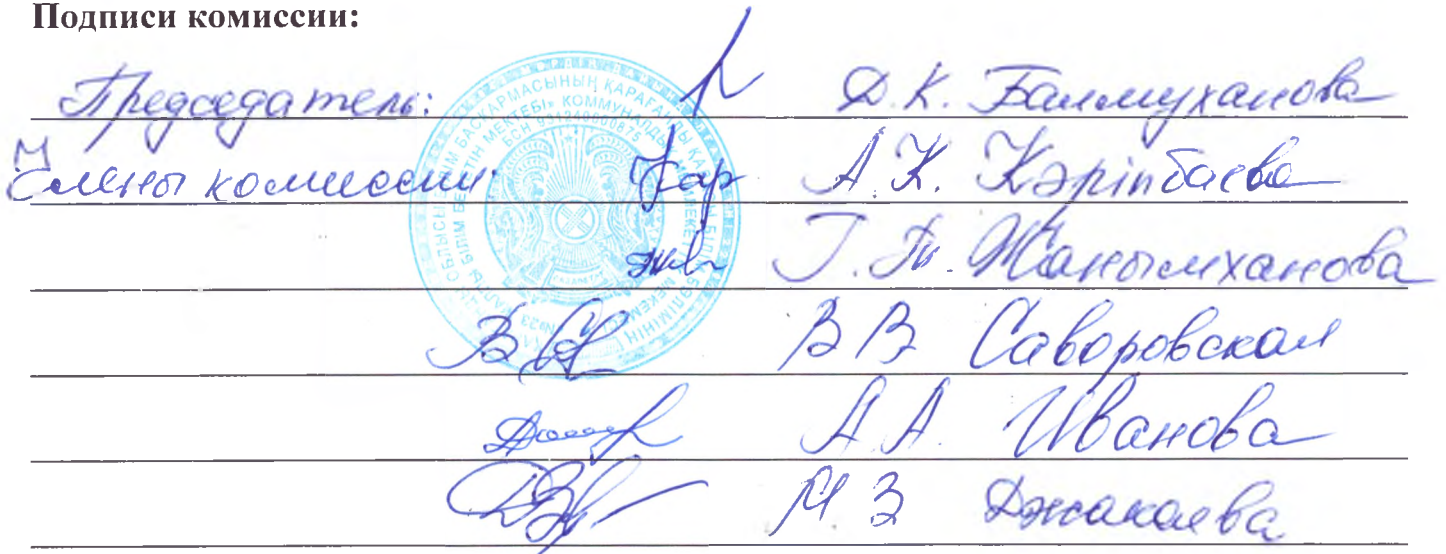 Подписи комиссии:
Председатель: Д.К. Балмуханова
Члены комиссии: А.К. Кәріпбаева
Г.Т. Жанымханова
В В Саворовская
А.А. Иванова
М З Джакаева